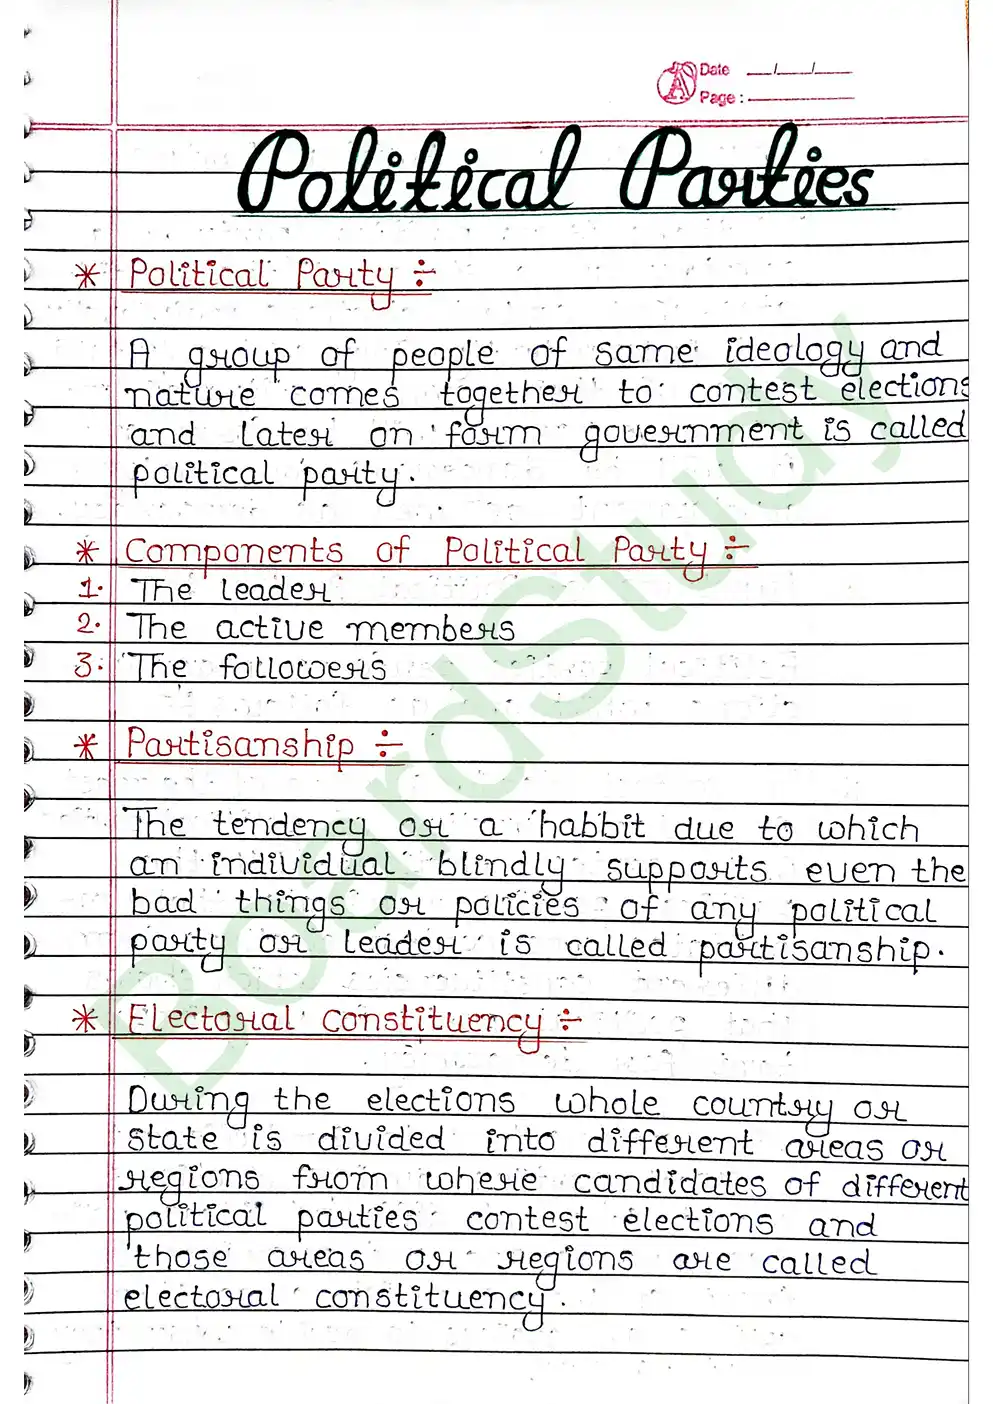 Date __/__/__
Page :
Political Parties
* Political Party ÷
A group of people of same ideology and
nature comes together to contest elections
and later on form government is called
political party.
* Components of Political Party ÷
1. The leader
2. The active members
3. The followers
* Partisanship ÷
The tendency or a habbit due to which
an individual blindly supports even the
bad things or policies of any political
party or leader is called partisanship.
* Electoral Constituency ÷
During the elections whole country or
state is divided into different areas or
regions from where candidates of different
political parties contest elections and
those areas or regions are called
electoral constituency.
BoardStudy